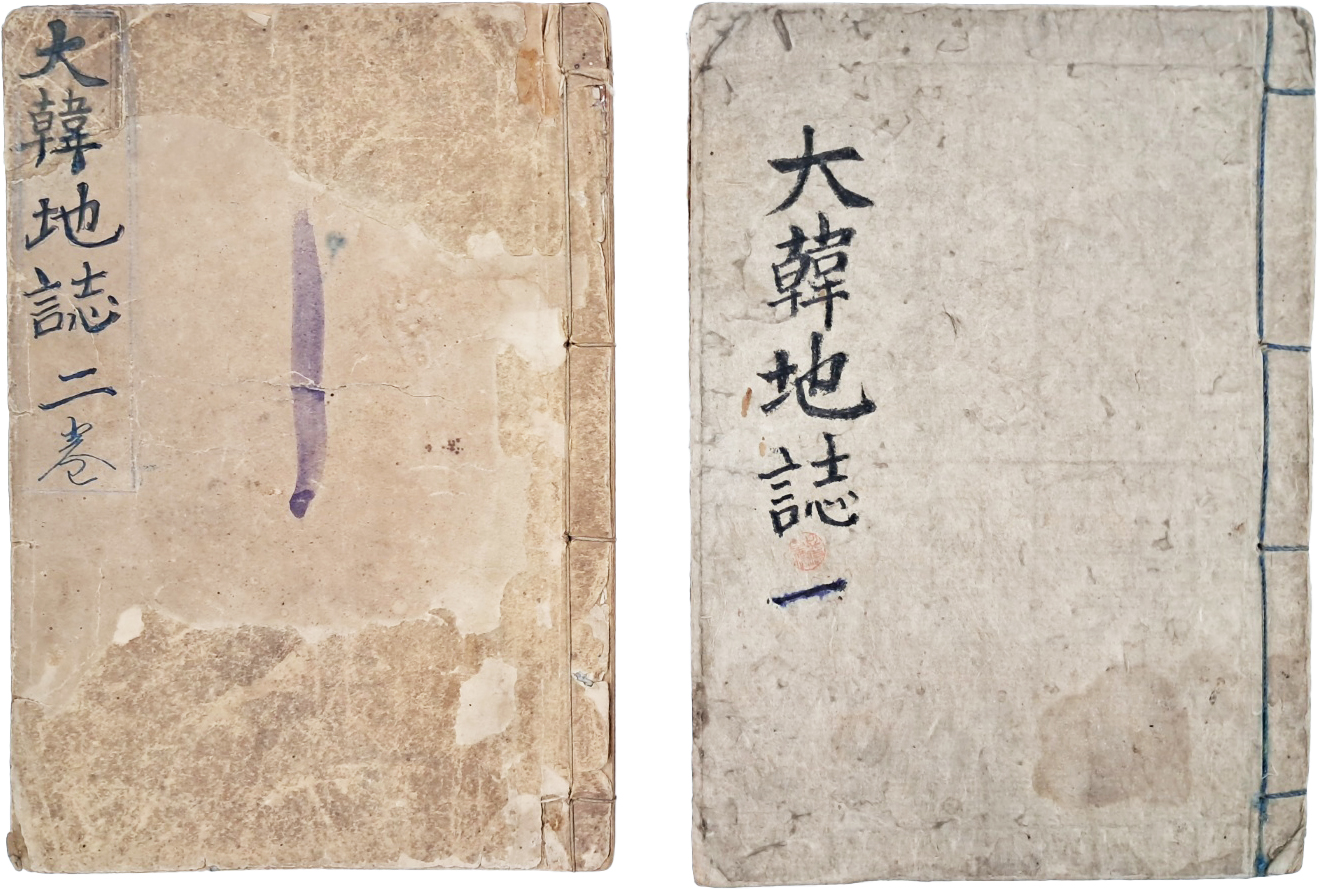 大韓地誌 二卷
大韓地誌 一